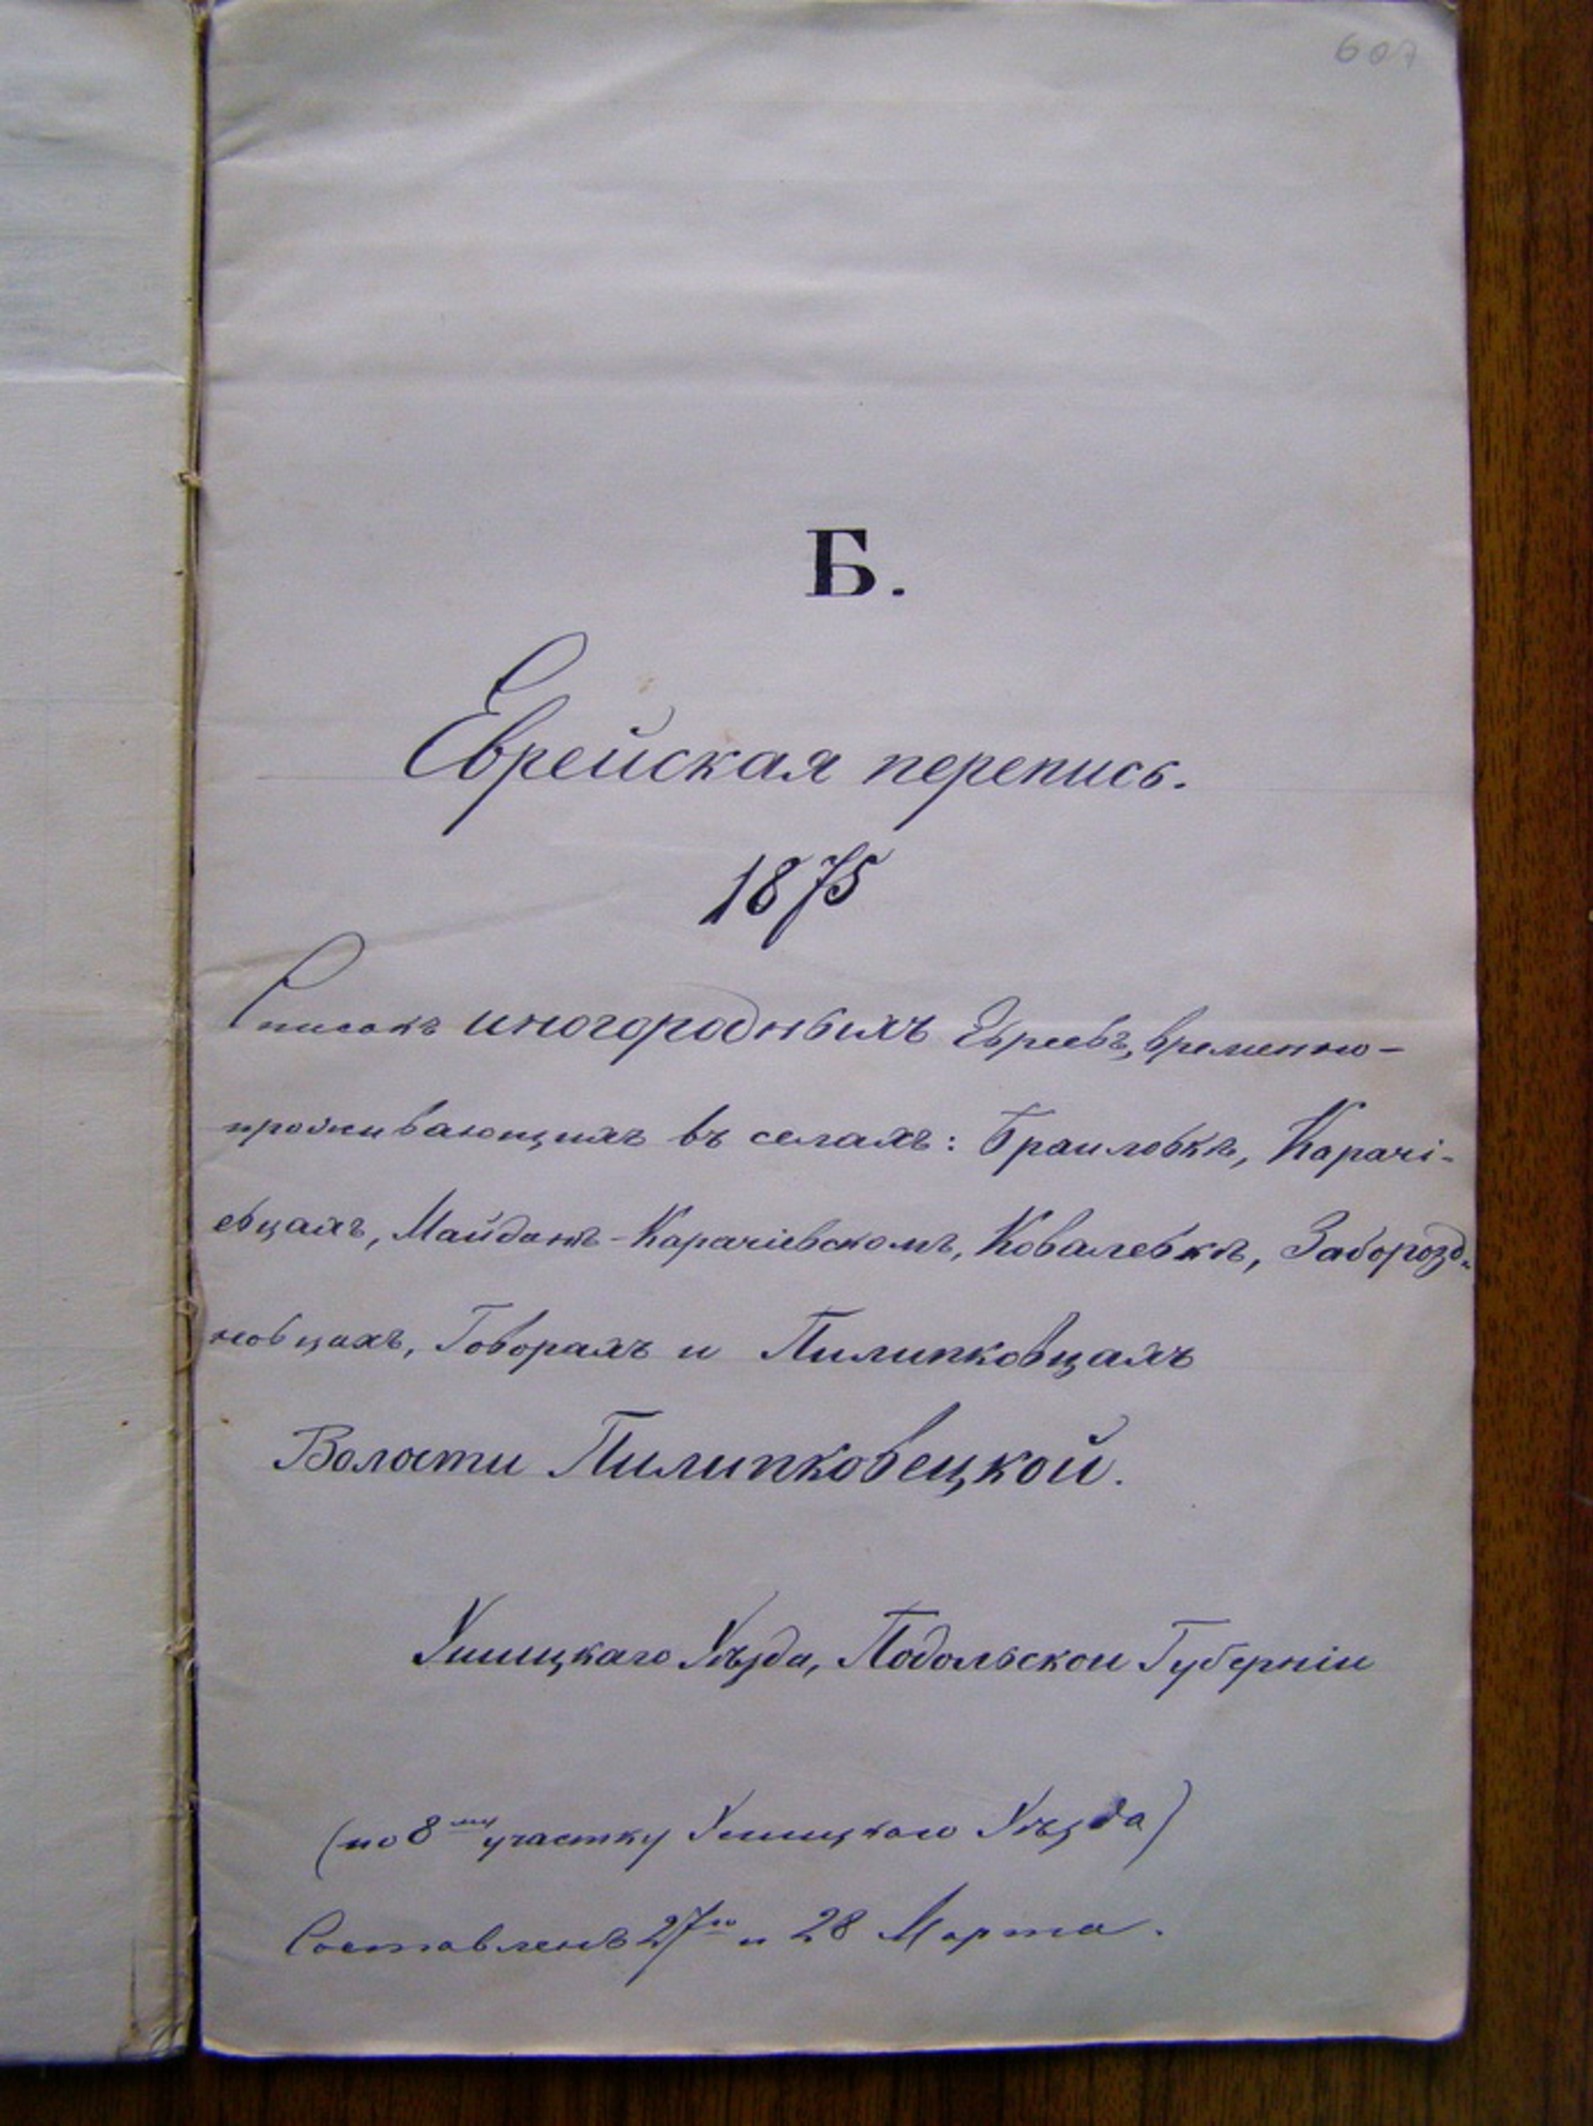 607
Б.
Еврейская перепись.
1875
Списокъ иногородныхъ Евреевъ, временно-
проживающихъ въ селахъ: Браиловкѣ, Карачі-
евцахъ, Майданѣ-Карачіевскомъ, Ковалевкѣ, Заборозд-
новцахъ, Говорахъ и Пилипковцахъ
Волости Пилипковецкой.
Ушицкаго Уѣзда, Подольской Губерніи
(по 8му участку Ушицкаго Уѣзда)
Составленъ 27го и 28 Марта.